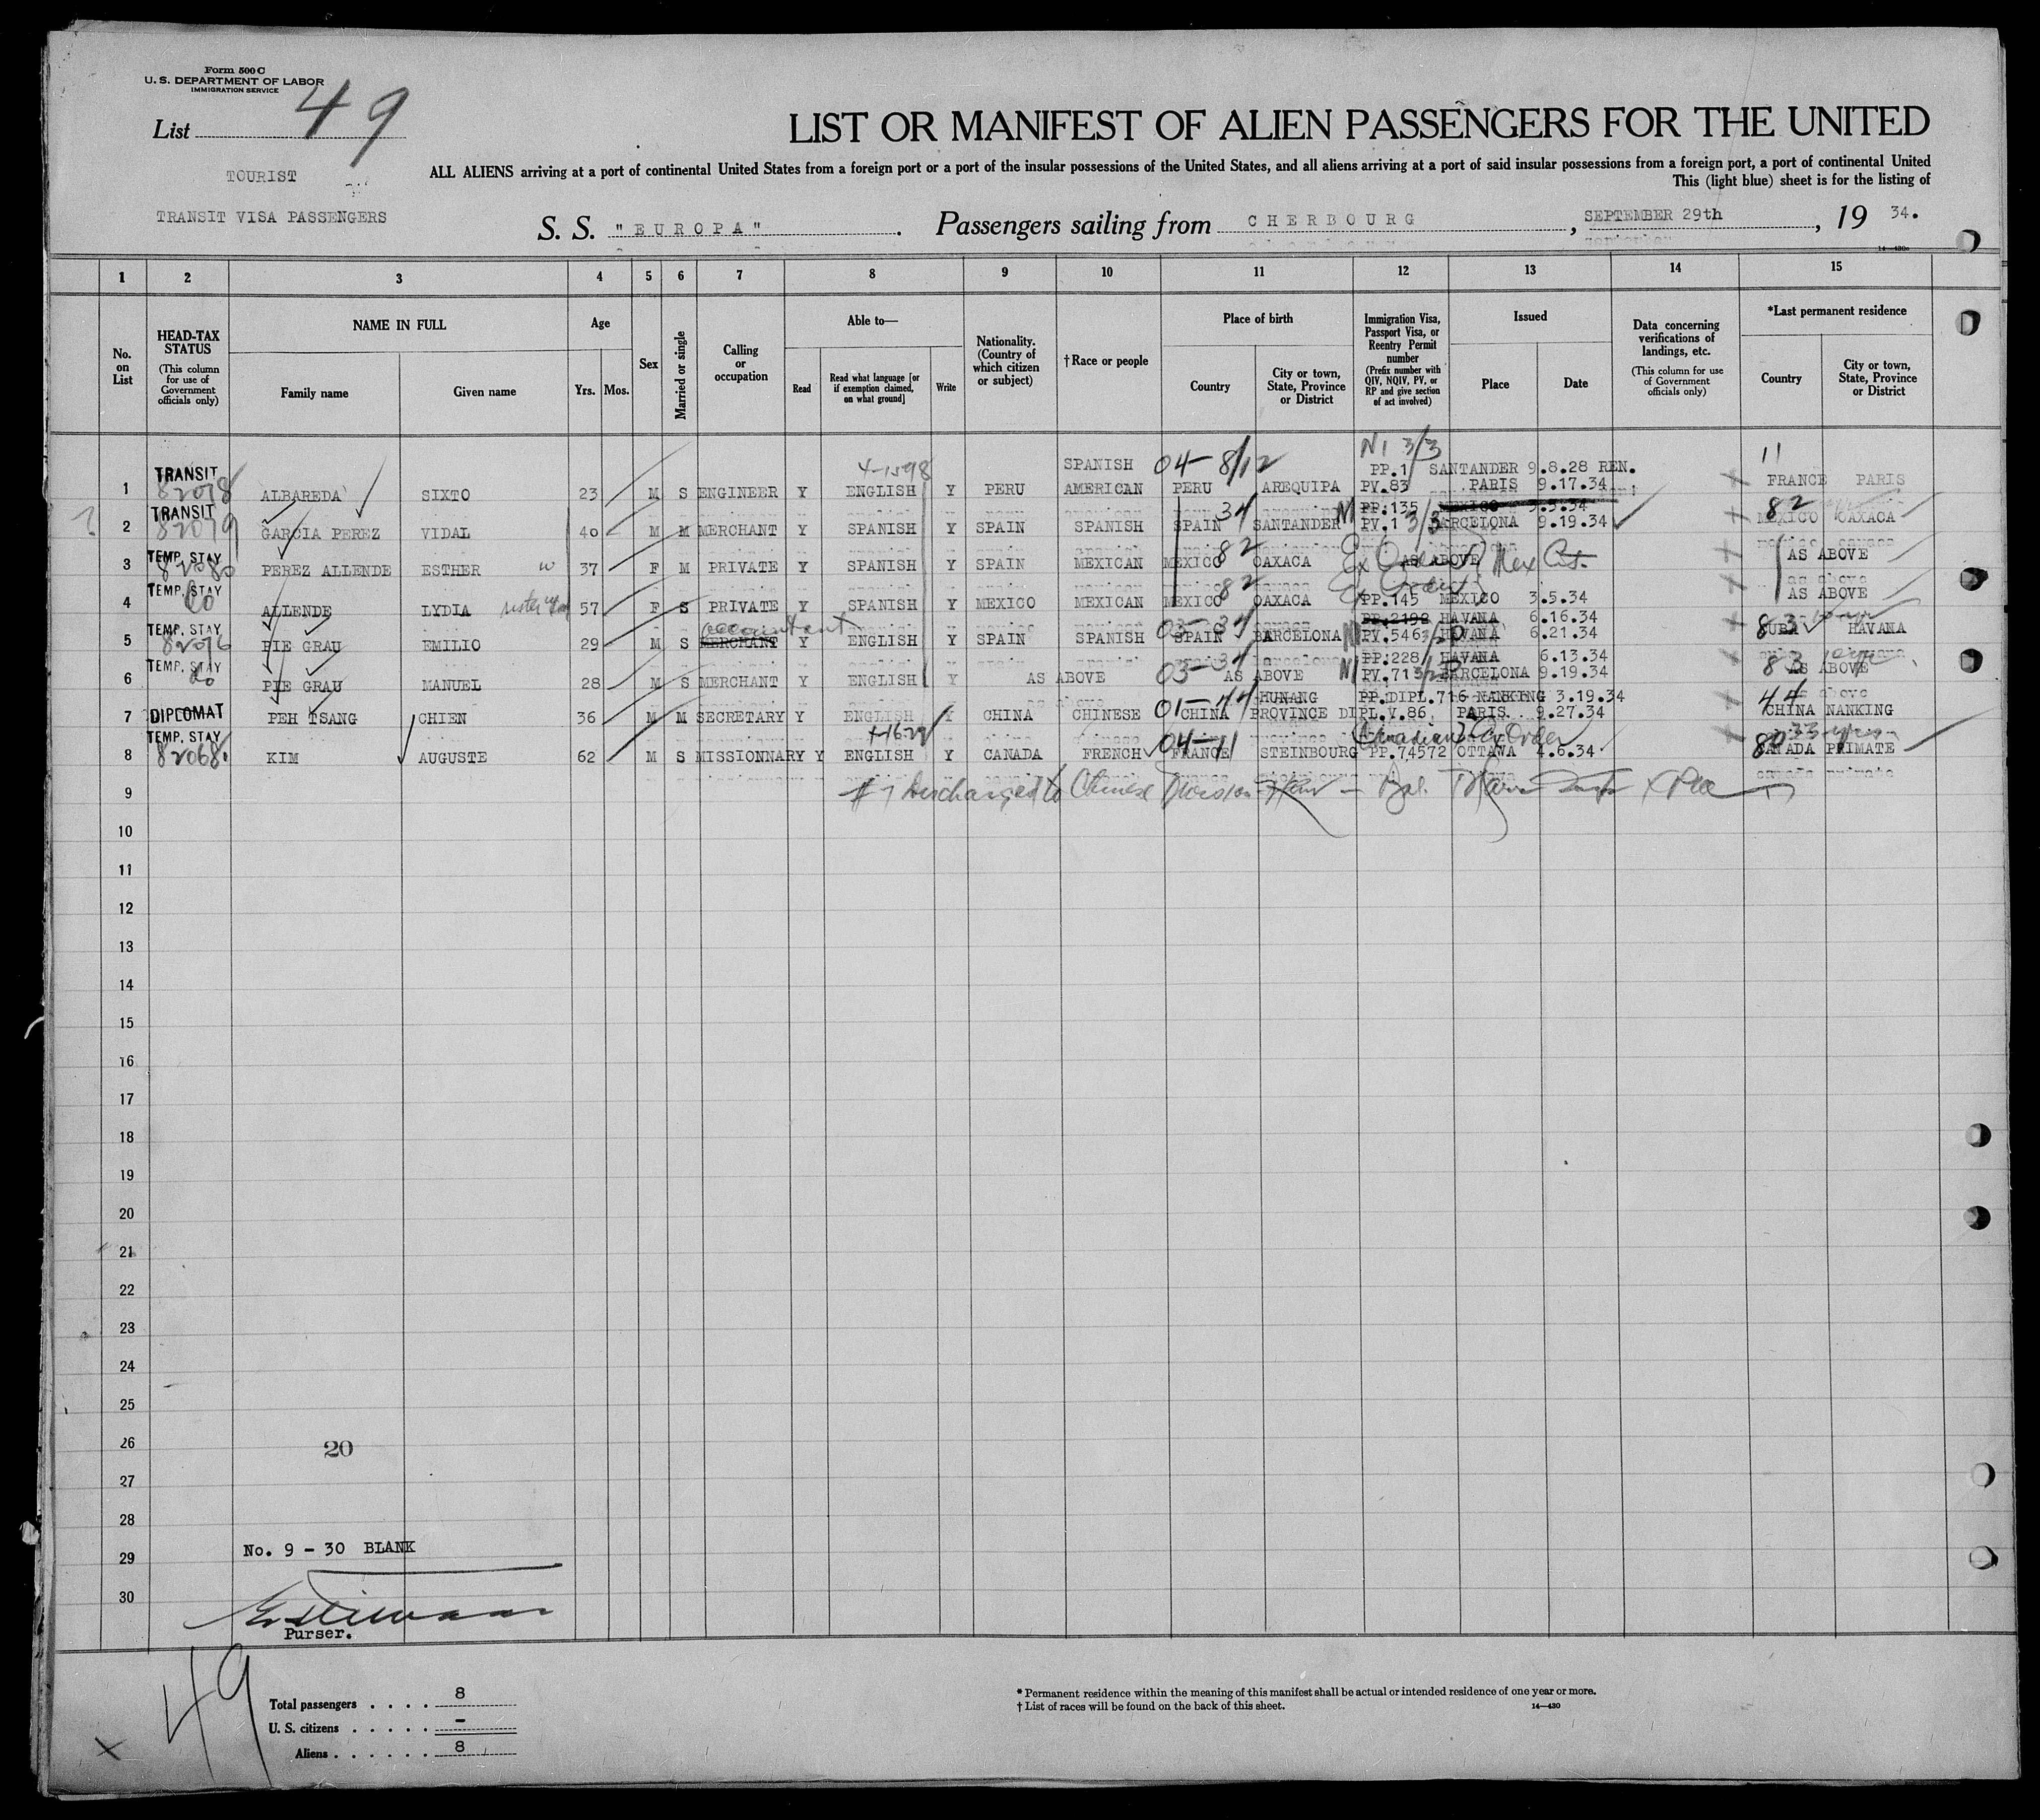 Form 500 C
U. S. DEPARTMENT OF LABOR
IMMIGRATION SERVICE
List 49
LIST OR MANIFEST OF ALIEN PASSENGERS FOR THE UNITED
ALL ALIENS arriving at a port of continental United States from a foreign port or a port of the insular possessions of the United States, and all aliens arriving at a port of said insular possessions from a foreign port, a port of continental United
This (light blue) sheet is for the listing of
TOURIST
TRANSIT VISA PASSENGERS
S. S. "EUROPA". Passengers sailing from CHERBOURG, SEPTEMBER 29th, 19 34.
14—430
1 2 3 4 5 6 7 8 9 10 11 12 13 14 15
No. on List
HEAD-TAX STATUS (This column for use of Government officials only)
NAME IN FULL
Family name
Given name
Age
Yrs. Mos.
Sex
Married or single
Calling or occupation
Able to—
Read
Read what language [or if exemption claimed, on what ground]
Write
Nationality. (Country of which citizen or subject)
†Race or people
Place of birth
Country
City or town, State, Province or District
Immigration Visa, Passport Visa, or Reentry Permit number (Prefix number with QIV, NQIV, PV, or RP and give section of act involved)
Issued
Place
Date
Data concerning verifications of landings, etc. (This column for use of Government officials only)
*Last permanent residence
Country
City or town, State, Province or District
N1 3/3
TRANSIT 4-1598 SPANISH 04-8/12 PP.1 SANTANDER 9.8.28 REN. 11
1 82078 ALBAREDA SIXTO 23 M S ENGINEER Y ENGLISH Y PERU AMERICAN PERU AREQUIPA PV.83 PARIS 9.17.34 FRANCE PARIS
TRANSIT 34 PP.135 MEXICO 3.5.34 82
2 82079 GARCIA PEREZ VIDAL 40 M M MERCHANT Y SPANISH Y SPAIN SPANISH SPAIN SANTANDER N1 PV.1 3/3 BARCELONA 9.19.34 MEXICO OAXACA
TEMP. STAY 82
3 82080 PEREZ ALLENDE ESTHER w 37 F M PRIVATE Y SPANISH Y SPAIN MEXICAN MEXICO OAXACA AS ABOVE AS ABOVE
TEMP. STAY 82
4 do ALLENDE LYDIA sister 57 F S PRIVATE Y SPANISH Y MEXICO MEXICAN MEXICO OAXACA PP.145 MEXICO 3.5.34 AS ABOVE
TEMP. STAY accountant 03-34 PP.2192 HAVANA 6.16.34 83
5 82076 PIE GRAU EMILIO 29 M S MERCHANT Y ENGLISH Y SPAIN SPANISH SPAIN BARCELONA N1 PV.546 HAVANA 6.21.34 CUBA HAVANA
TEMP. STAY 03-34 PP.228 HAVANA 6.13.34 83
6 do PIE GRAU MANUEL 28 M S MERCHANT Y ENGLISH Y AS ABOVE AS ABOVE N1 PV.71 BARCELONA 9.19.34 AS ABOVE
01-44 HUNANG PP.DIPL.716 NANKING 3.19.34 44
7 DIPLOMAT PEH TSANG CHIEN 36 M M SECRETARY Y ENGLISH Y CHINA CHINESE CHINA PROVINCE DIPL.V.86 PARIS 9.27.34 CHINA NANKING
TEMP. STAY 04-11 (Canadian) 80 33 yrs
8 82068 KIM AUGUSTE 62 M S MISSIONNARY Y ENGLISH Y CANADA FRENCH FRANCE STEINBOURG PP.74572 OTTAWA 4.6.34 CANADA PRIMATE
9 #7 Discharged to Chinese Division
10
11
12
13
14
15
16
17
18
19
20
21
22
23
24
25
26
20
27
28
No. 9 - 30 BLANK
29
30
Purser.
49
Total passengers . . . . 8
U. S. citizens . . . . . -
Aliens . . . . . . 8
* Permanent residence within the meaning of this manifest shall be actual or intended residence of one year or more.
† List of races will be found on the back of this sheet.
14—430